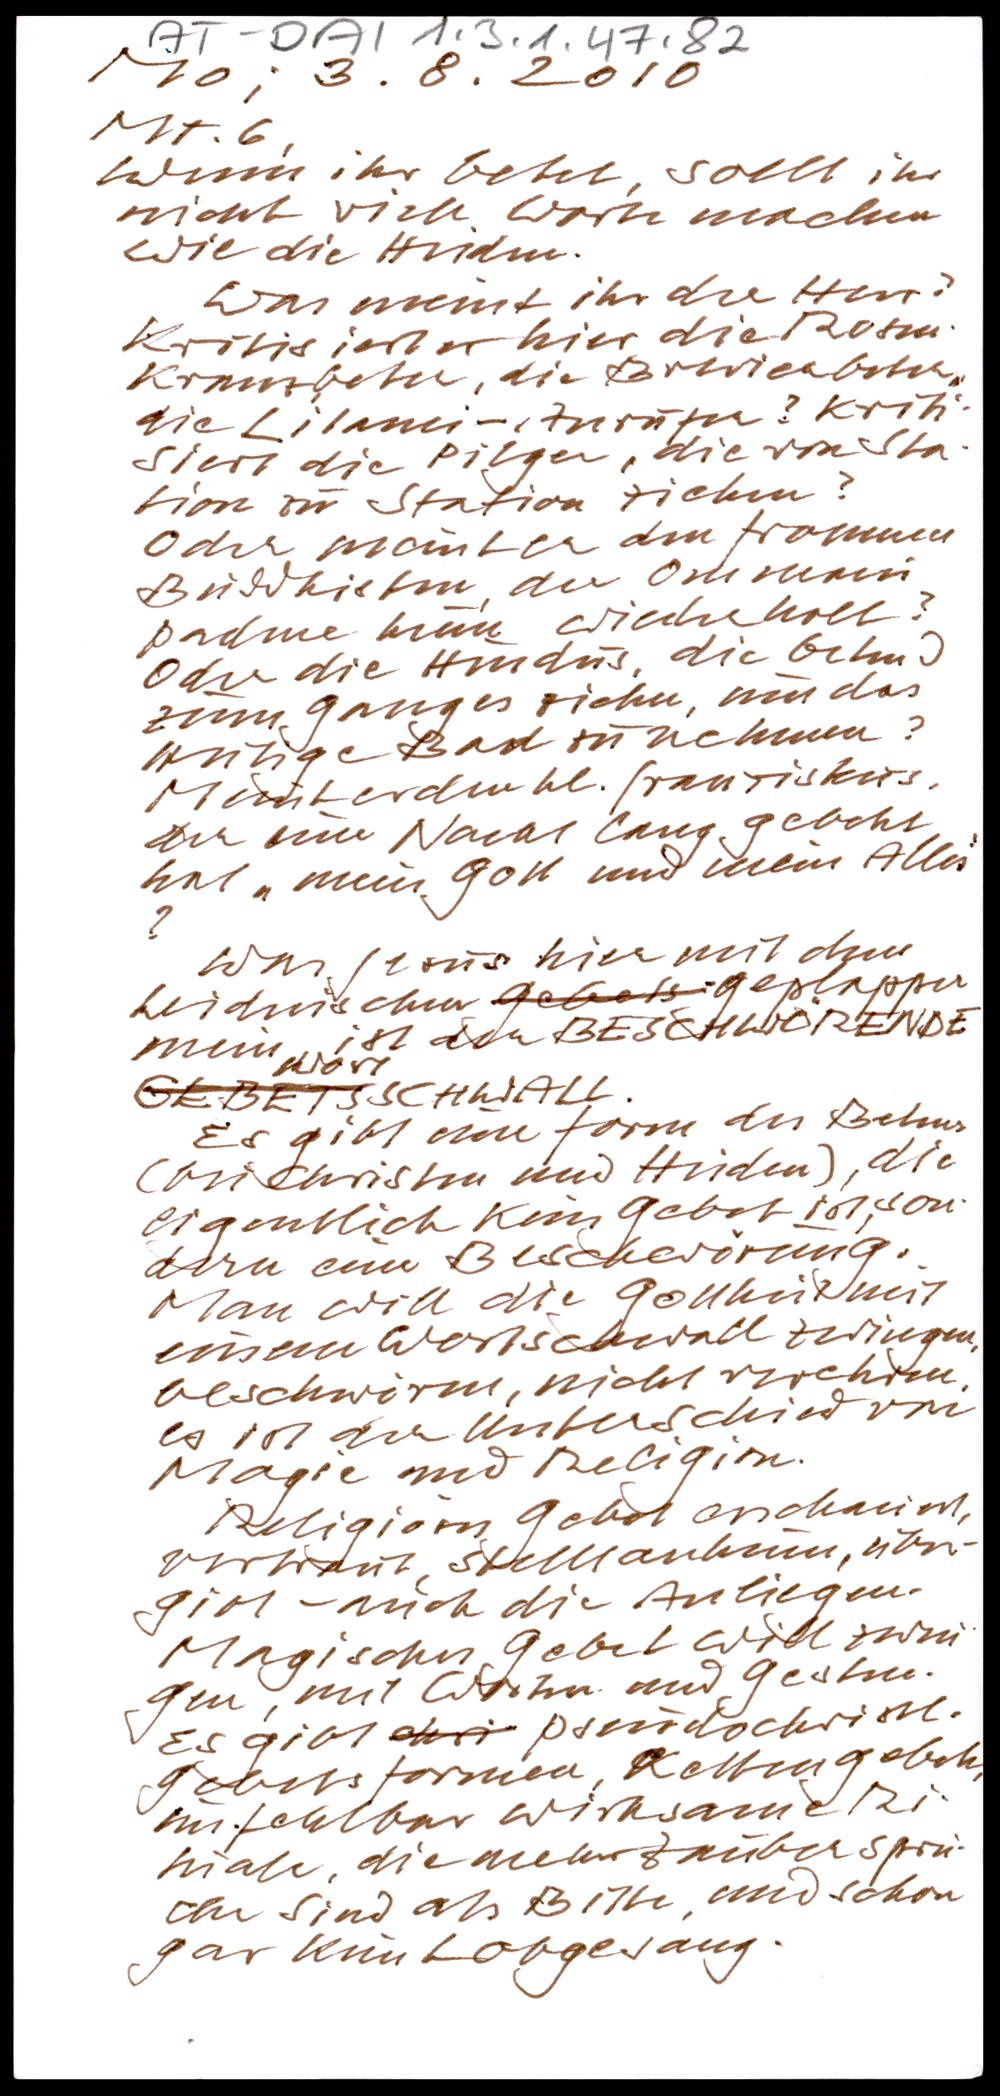 AT-DAI 1.3.1.47.82
Mo, 3.8.2010
Mt. 6,
Wenn ihr betet, sollt ihr
nicht viele Worte machen
wie die Heiden.
Was meint ihr der Herr?
Kritisiert er hier die Rosen-
kranzbeter, die Brevierbeter,
die Litanei-Zurufer? Kriti-
siert die Pilger, die von Sta-
tion zu Station ziehen?
Oder meint er den frommen
Buddhisten, der Om mani
padme hum wiederholt?
Oder die Hindus, die betend
zum Ganges ziehen, um das
Heilige Bad zu nehmen?
Meint er den hl. Franziskus,
der eine Nacht lang gebetet
hat „mein Gott und mein Alles"
?
Was Jesus hier mit dem
heidnischen Gebets geplapper
meint, ist der BESCHWÖRENDE
Wort
GEBETSSCHWALL.
Es gibt eine Form des Betens
(bei Christen und Heiden), die
eigentlich kein Gebet ist, son-
dern eine Beschwörung.
Man will die Gottheit mit
einem Wortschwall zwingen,
beschwören, nicht verehren,
es ist der Unterschied von
Magie und Religion.
Religiöses Gebet erschauert,
vertraut, stellt anheim, über-
gibt - auch die Anliegen.
Magisches Gebet will zwin-
gen, mit Worten und Gesten.
Es gibt chri pseudochristl.
Gebetsformen, Kettengebete,
unfehlbar wirksame Ri-
tuale, die mehr Zaubersprü-
che sind als Bitte, und schon
gar kein Lobgesang.